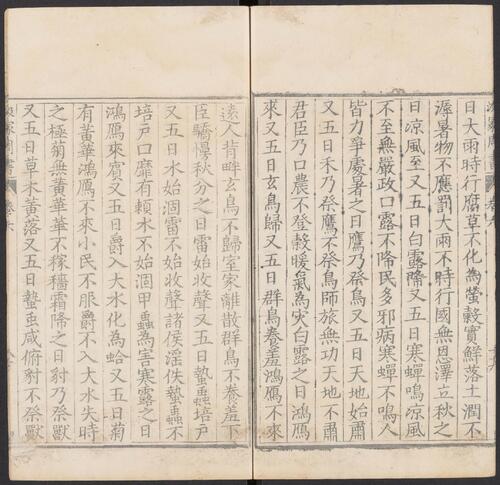 日大雨時行腐草不化為螢穀實鮮落土潤不
溽暑物不應罰大雨不時行國無恩澤立秋之
日凉風至又五日白露降又五日寒蟬鳴凉風
不至無嚴政口露不降民多邪病寒蟬不鳴人
皆力爭處暑之日鷹乃祭鳥又五日天地始肅
又五日禾乃登鷹不祭鳥師旅無功天地不肅
君臣乃口農不登穀暖氣為災白露之日鴻鴈
來又五日玄鳥歸又五日群鳥養羞鴻鴈不來
遠人背畔玄鳥不歸室家離散群鳥不養羞下
臣驕慢秋分之日雷始收聲又五日蟄蟲培戶
又五日水始涸雷不始收聲諸侯淫佚蟄蟲不
培戶口靡有賴水不始涸甲蟲為害寒露之日
鴻鴈來賓又五日爵入大水化為蛤又五日菊
有黃華鴻鴈不來小民不服爵不入大水失時
之極菊無黃華華不稼穡霜降之日豺乃祭獸
又五日草木黃落又五日蟄蟲咸俯豺不祭獸